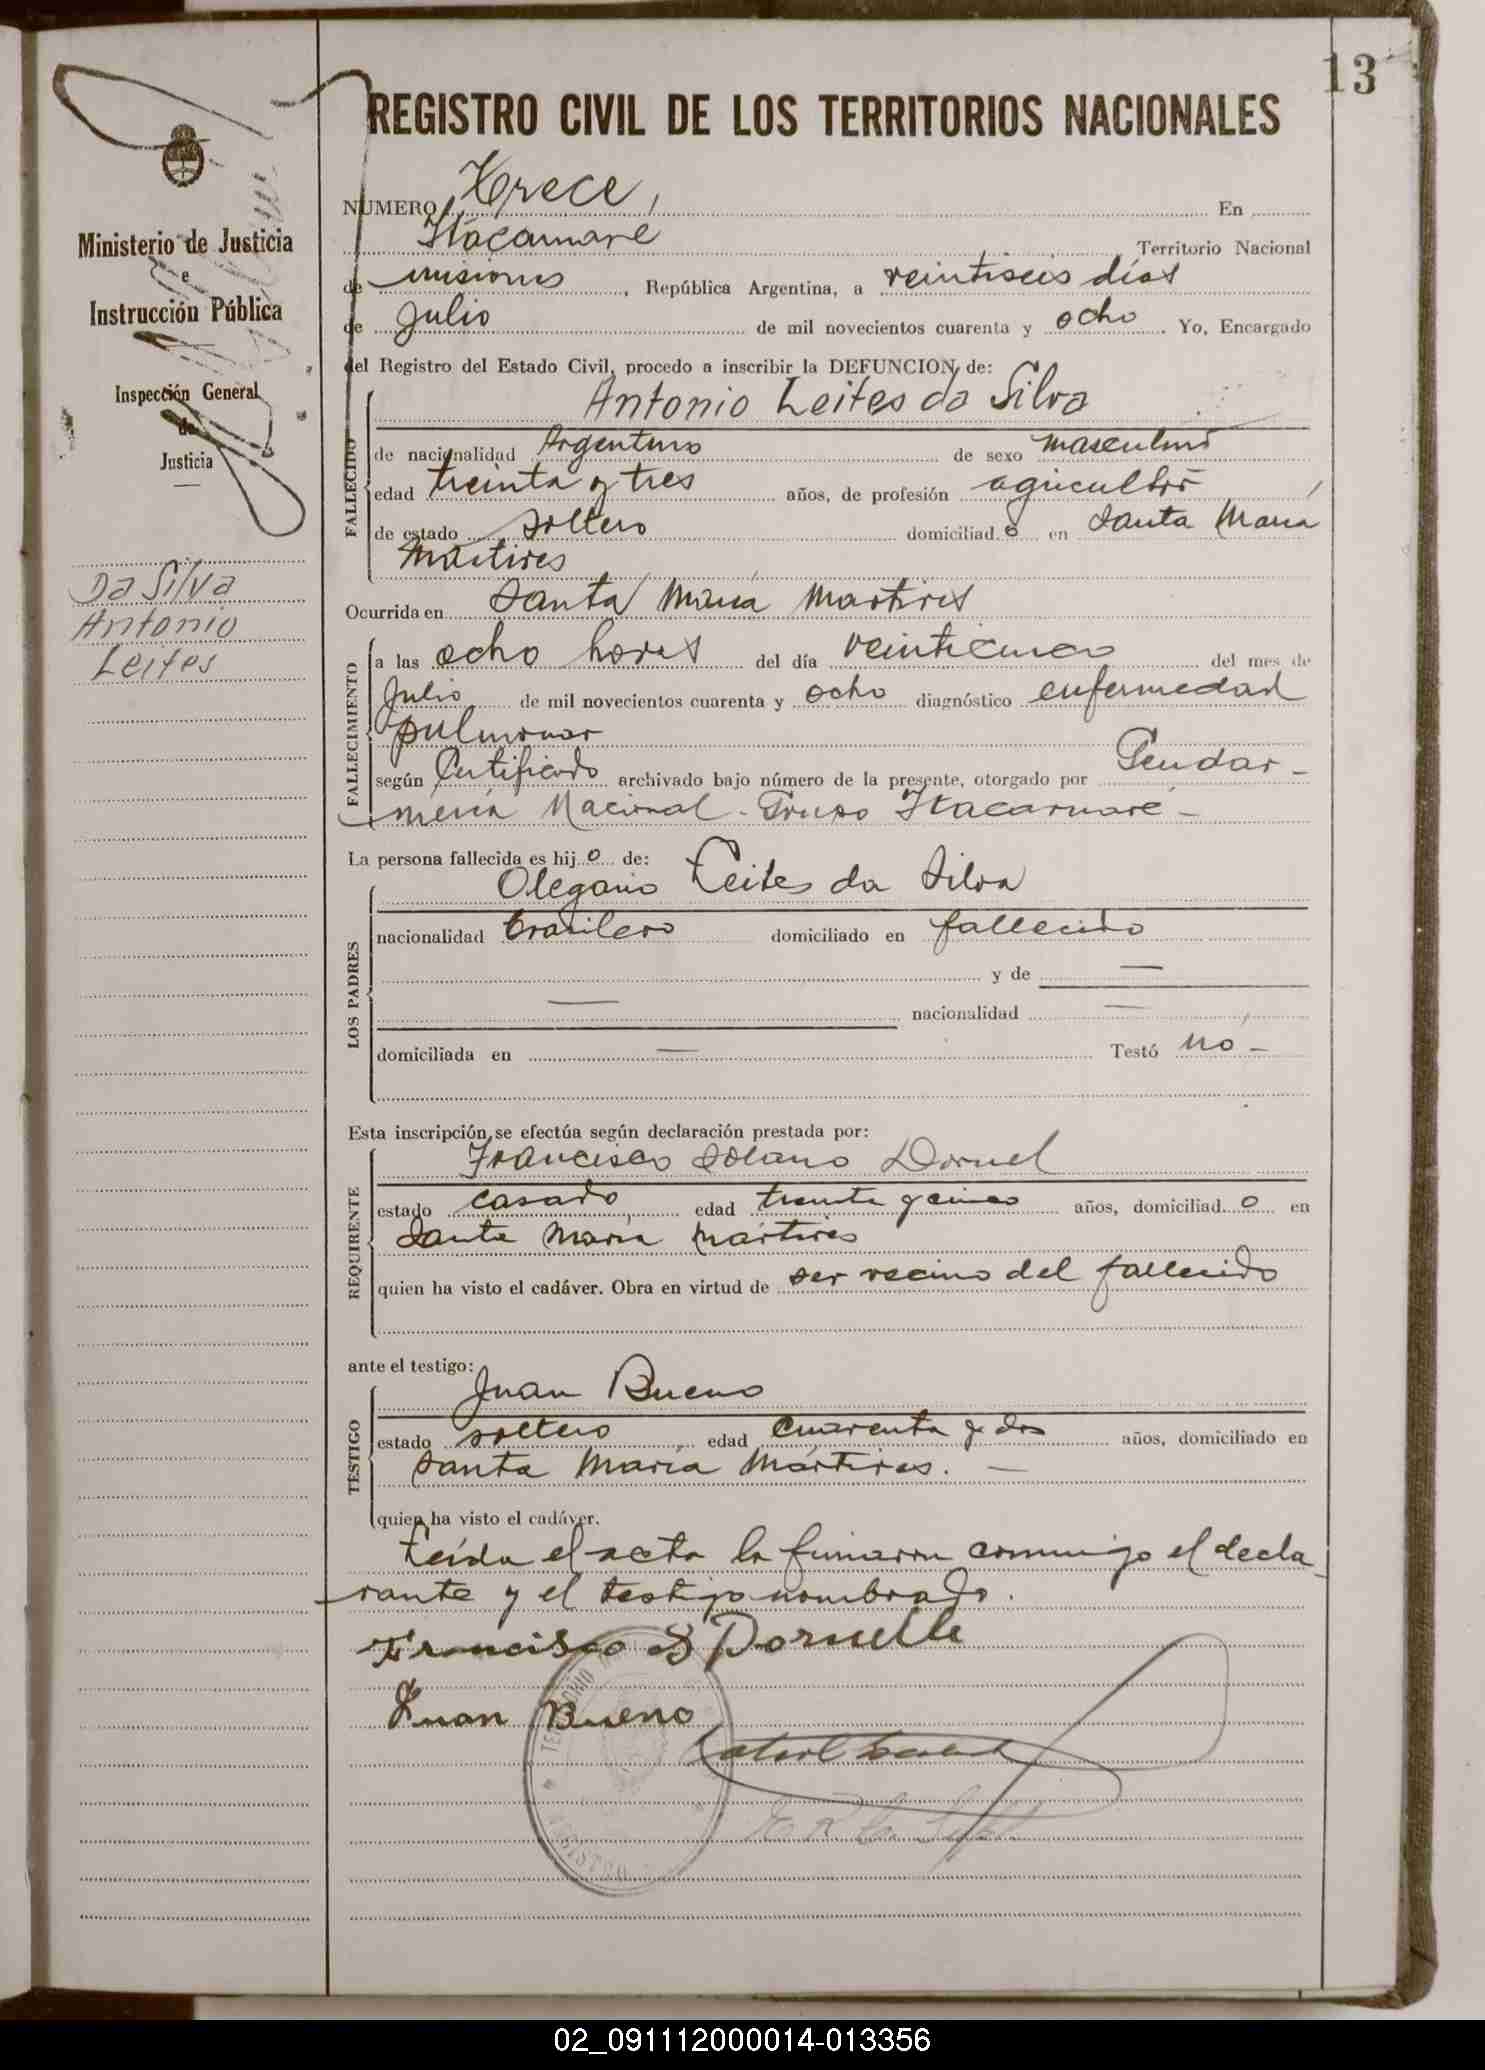 13
REGISTRO CIVIL DE LOS TERRITORIOS NACIONALES
Ministerio de Justicia
e
Instrucción Pública
Inspección General
de
Justicia
Da Silva
Antonio
Leites
NUMERO Trece, En
Itacaruaré Territorio Nacional
de misiones, República Argentina, a veintiseis días
de Julio de mil novecientos cuarenta y ocho. Yo, Encargado
del Registro del Estado Civil, procedo a inscribir la DEFUNCION de:
Antonio Leites da Silva
FALLECIDO
de nacionalidad Argentino de sexo masculino
edad treinta y tres años, de profesión agricultor
de estado soltero domiciliad o en Santa María
Mártires
Ocurrida en Santa María Martires
FALLECIMIENTO
a las ocho horas del día veinticinco del mes de
Julio de mil novecientos cuarenta y ocho diagnóstico enfermedad
pulmonar
según Certificado archivado bajo número de la presente, otorgado por Gendar-
mería Nacional - Grupo Itacaruaré -
La persona fallecida es hij o de:
Olegario Leites da Silva
LOS PADRES
nacionalidad brasilero domiciliado en fallecido
y de —
— nacionalidad —
domiciliada en — Testó no -
Esta inscripción se efectúa según declaración prestada por:
Francisco Solano Dornel
REQUIRENTE
estado casado, edad treinta y cinco años, domiciliad o en
Santa María Mártires
quien ha visto el cadáver. Obra en virtud de ser vecino del fallecido
ante el testigo:
Juan Bueno
TESTIGO
estado soltero edad cuarenta y dos años, domiciliado en
Santa María Mártires. —
quien ha visto el cadáver.
Leída el acta la firmaron conmigo el decla
rante y el testigo nombrado.
Francisco S Dornelle
Juan Bueno
02_091112000014-013356